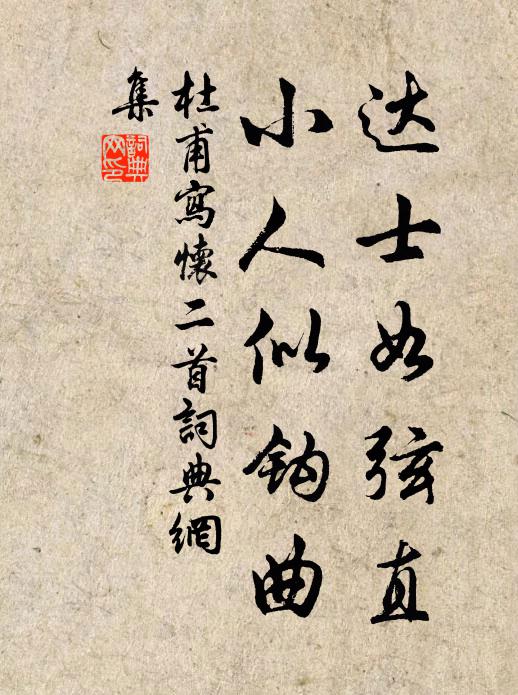 达士如弦直
小人似钩曲
杜甫寫懷二首詞典網
集
詞典
网印